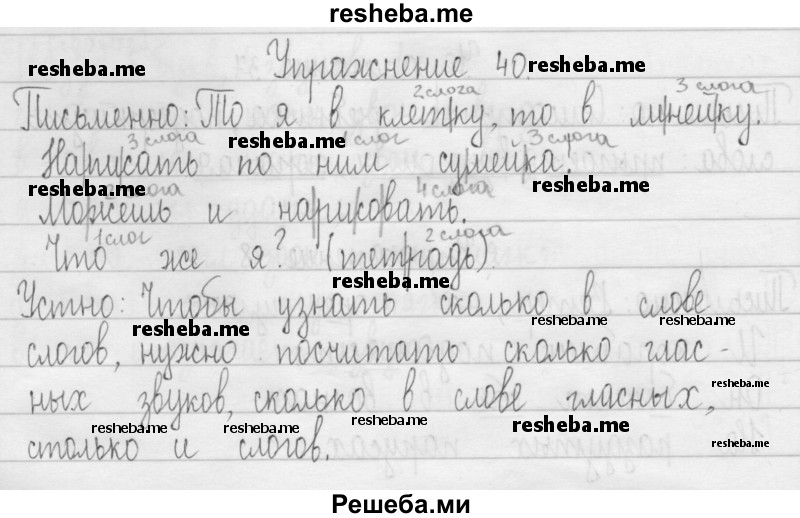 resheba.me
Упражнение 40.
resheba.me resheba.me
2 слога 3 слога
Письменно: То я в клетку, то в линейку.
3 слога resheba.me 1 слог 3 слога
Написать по ним сумейка.
resheba.me resheba.me
слога 4 слога
Можешь и нарисовать.
1 слог 2 слога
Что же я? (тетрадь).
resheba.me
Устно: Чтобы узнать сколько в слове
resheba.me resheba.me resheba.me
слогов, нужно посчитать сколько глас-
resheba.me
ных звуков, сколько в слове гласных,
resheba.me resheba.me resheba.me resheba.me resheba.me
столько и слогов.
Решеба.ми